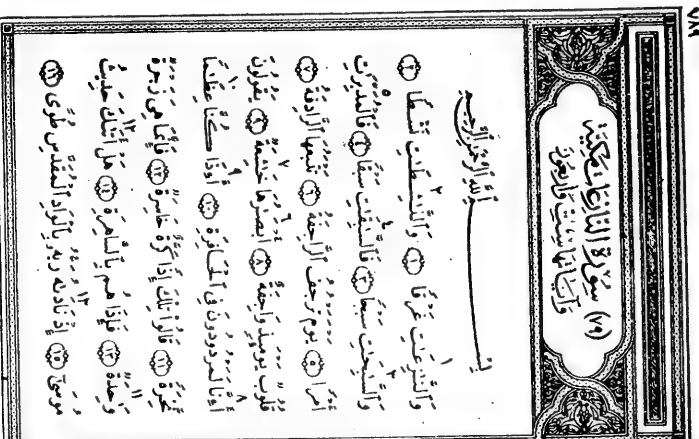 ٧٨٩
(٧٩) سُورَةُ النَّازِعَاتِ مَكِّيَّة
وَآيَاتُهَا سِتٌّ وَأَرْبَعُونَ
بِسْمِ ٱللَّهِ ٱلرَّحْمَٰنِ ٱلرَّحِيمِ
وَٱلنَّٰزِعَٰتِ غَرْقًا ١ وَٱلنَّٰشِطَٰتِ نَشْطًا ٢
وَٱلسَّٰبِحَٰتِ سَبْحًا ٣ فَٱلسَّٰبِقَٰتِ سَبْقًا ٤ فَٱلْمُدَبِّرَٰتِ
أَمْرًا ٥ يَوْمَ تَرْجُفُ ٱلرَّاجِفَةُ ٦ تَتْبَعُهَا ٱلرَّادِفَةُ ٧
قُلُوبٌ يَوْمَئِذٍ وَاجِفَةٌ ٨ أَبْصَٰرُهَا خَٰشِعَةٌ ٩ يَقُولُونَ
أَءِنَّا لَمَرْدُودُونَ فِى ٱلْحَافِرَةِ ١٠ أَءِذَا كُنَّا عِظَٰمًا
نَّخِرَةً ١١ قَالُوا۟ تِلْكَ إِذًا كَرَّةٌ خَاسِرَةٌ ١٢ فَإِنَّمَا هِىَ زَجْرَةٌ
وَٰحِدَةٌ ١٣ فَإِذَا هُم بِٱلسَّاهِرَةِ ١٤ هَلْ أَتَىٰكَ حَدِيثُ
مُوسَىٰٓ ١٥ إِذْ نَادَىٰهُ رَبُّهُۥ بِٱلْوَادِ ٱلْمُقَدَّسِ طُوًى ١٦